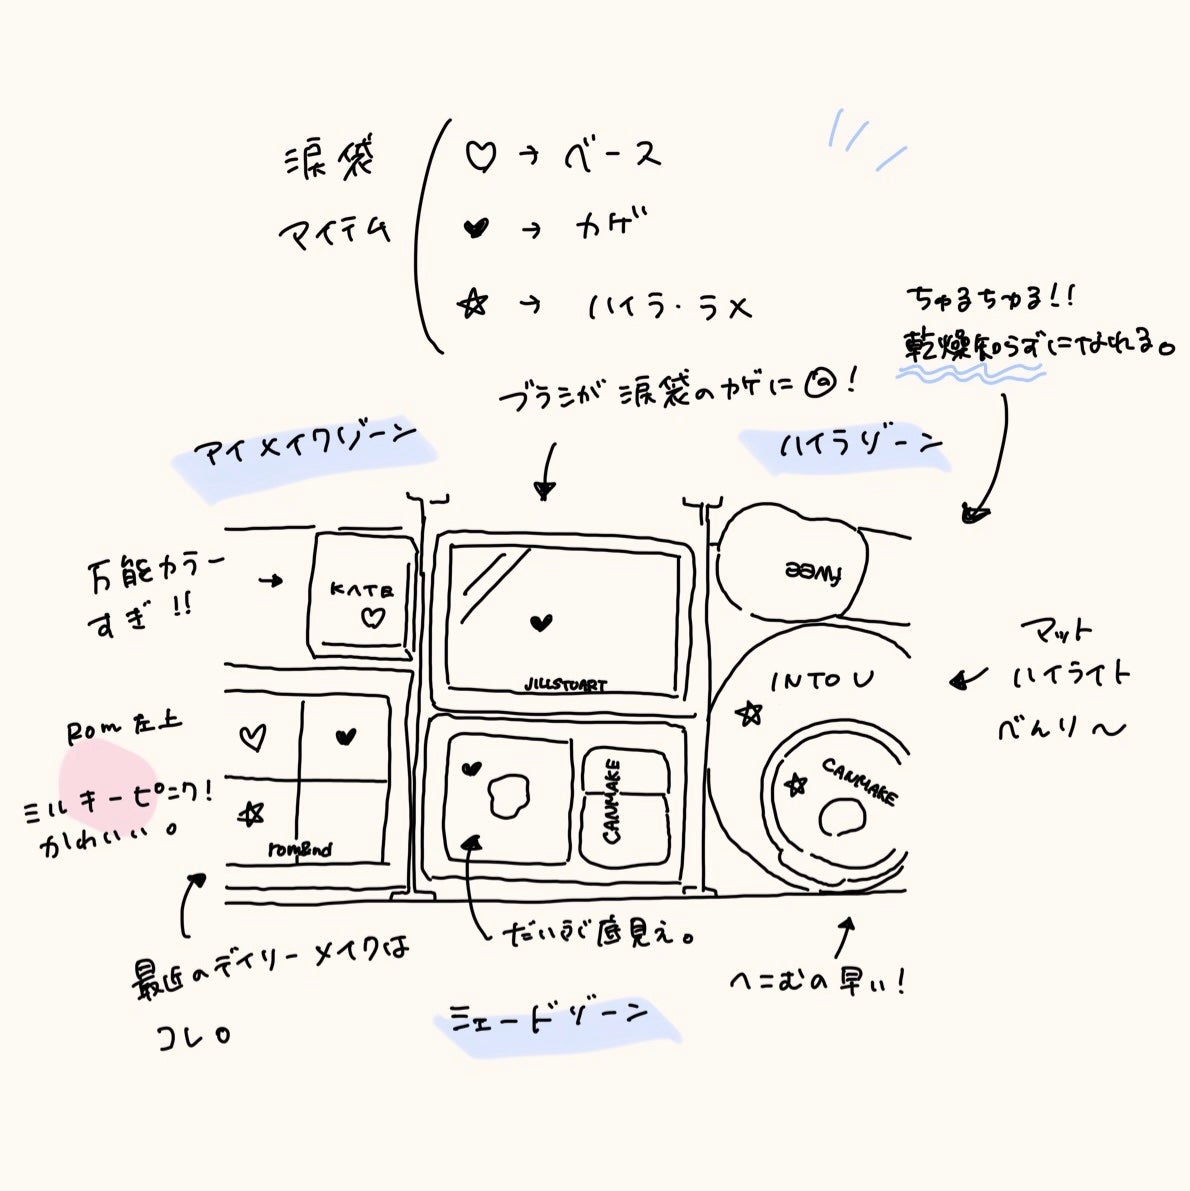 涙袋
アイテム
♡→ベース
♥→カゲ
☆→ハイラ・ラメ
ちゅるちゅる!!
乾燥知らずになれる。
ブラシが涙袋のカゲに◎!
アイメイクゾーン
ハイラゾーン
万能カラー
すぎ!!
KATE
♡
♥
JILLSTUART
fwee
INTO U
☆
マット
ハイライト
べんり〜
Rom左上
ミルキーピンク!
かわいい。
♡ ♥
☆
rom&nd
♥
CANMAKE
☆ CANMAKE
最近のデイリーメイクは
コレ。
だいぶ底見え。
へこむの早い!
シェードゾーン